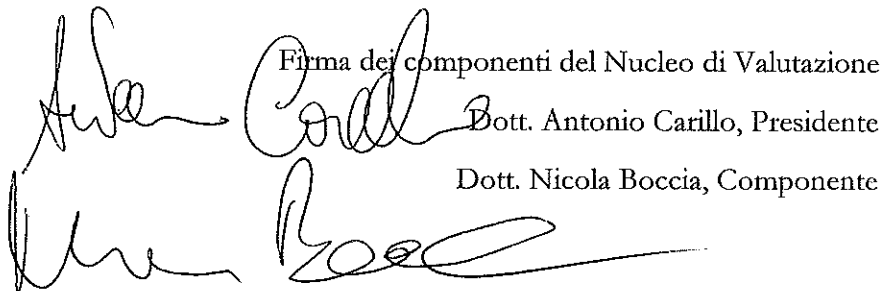 Firma dei componenti del Nucleo di Valutazione
Dott. Antonio Carillo, Presidente
Dott. Nicola Boccia, Componente